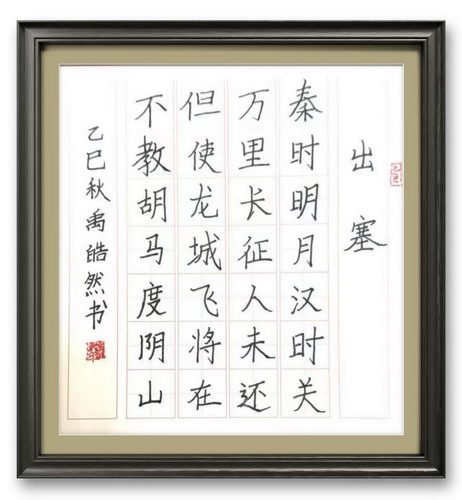 出塞
秦时明月汉时关
万里长征人未还
但使龙城飞将在
不教胡马度阴山
乙巳秋禹皓然书